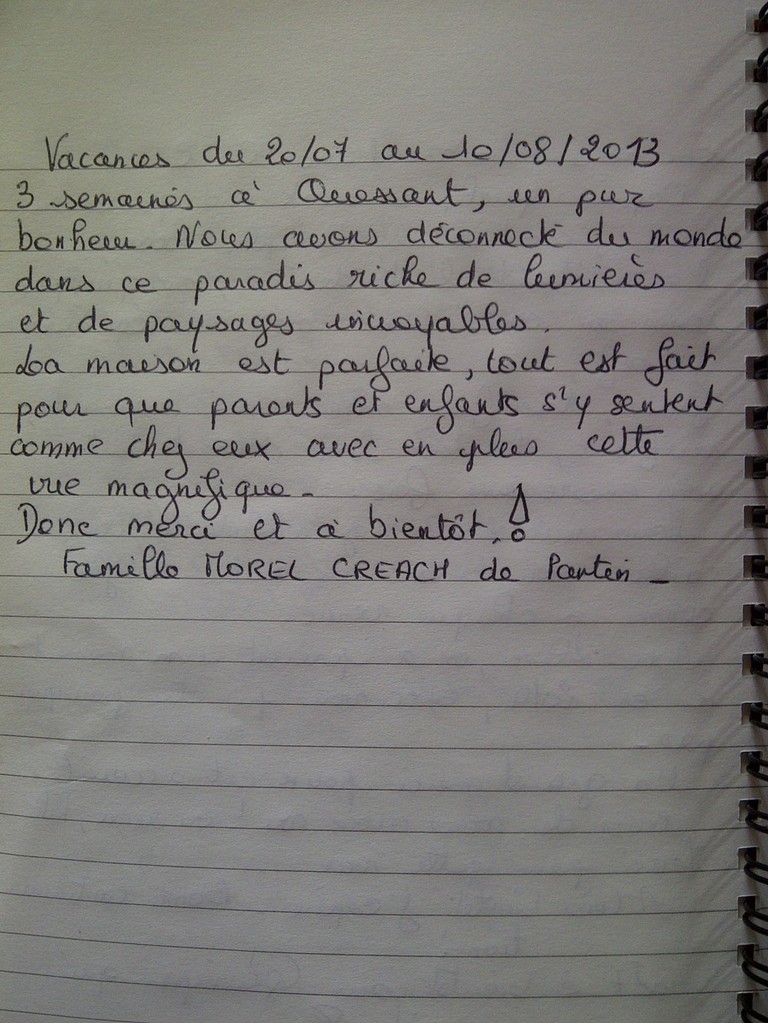 Vacances du 20/07 au 10/08/2013
3 semaines à Ouessant, un pur
bonheur. Nous avons déconnecté du monde
dans ce paradis riche de lumières
et de paysages incroyables.
La maison est parfaite, tout est fait
pour que parents et enfants s'y sentent
comme chez eux avec en plus cette
vue magnifique.
Donc merci et à bientôt.!
Famille MOREL CREACH de Pantin